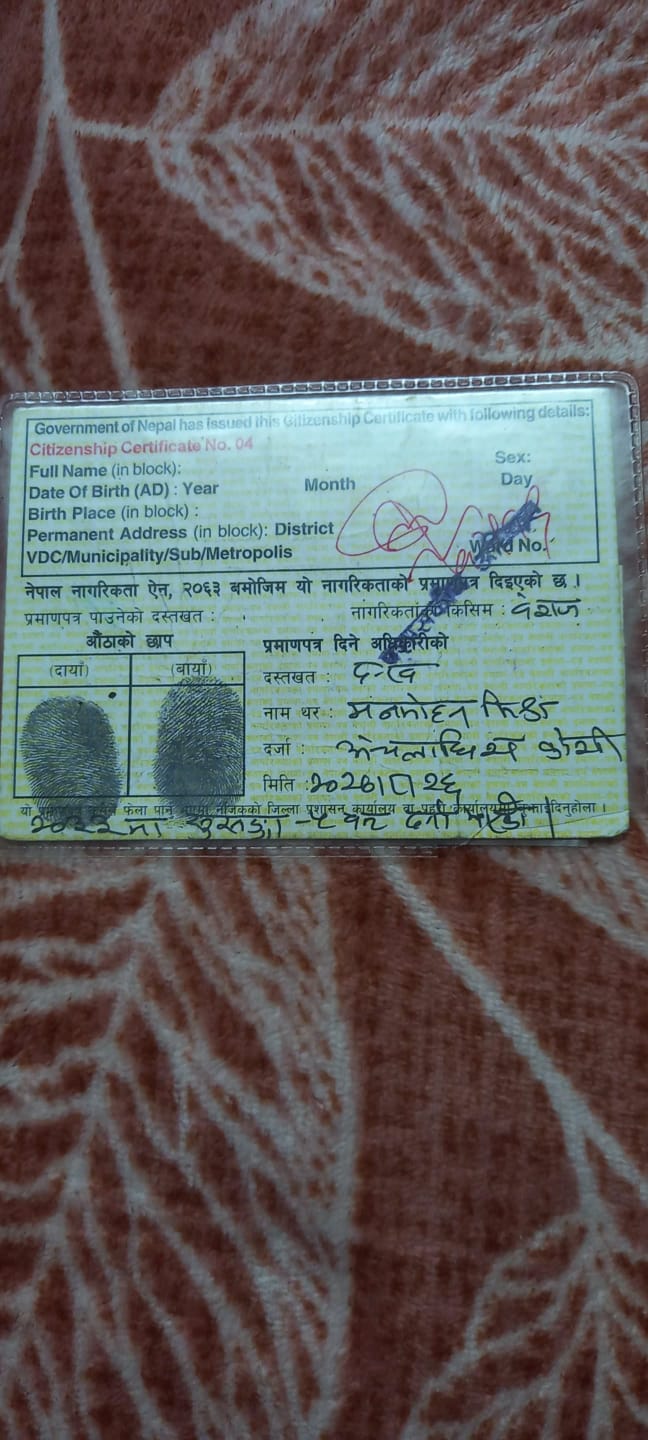 Government of Nepal has issued this Citizenship Certificate with following details:
Citizenship Certificate No. 04
Full Name (in block): Sex:
Date Of Birth (AD) : Year Month Day
Birth Place (in block) :
Permanent Address (in block): District
VDC/Municipality/Sub/Metropolis Ward No.
नेपाल नागरिकता ऐन, २०६३ बमोजिम यो नागरिकताको प्रमाणपत्र दिइएको छ ।
प्रमाणपत्र पाउनेको दस्तखत : नागरिकताको किसिम : वंशज
औंठाको छाप प्रमाणपत्र दिने अधिकारीको
(दायाँ) (बायाँ)
दस्तखत :
नाम थर : मनमोहन
दर्जा : अञ्चलाधिश कोशी
मिति :
यो फेला पार्ने नजिकको जिल्ला प्रशासन कार्यालय वा प्रहरी कार्यालयमा दिनुहोला ।